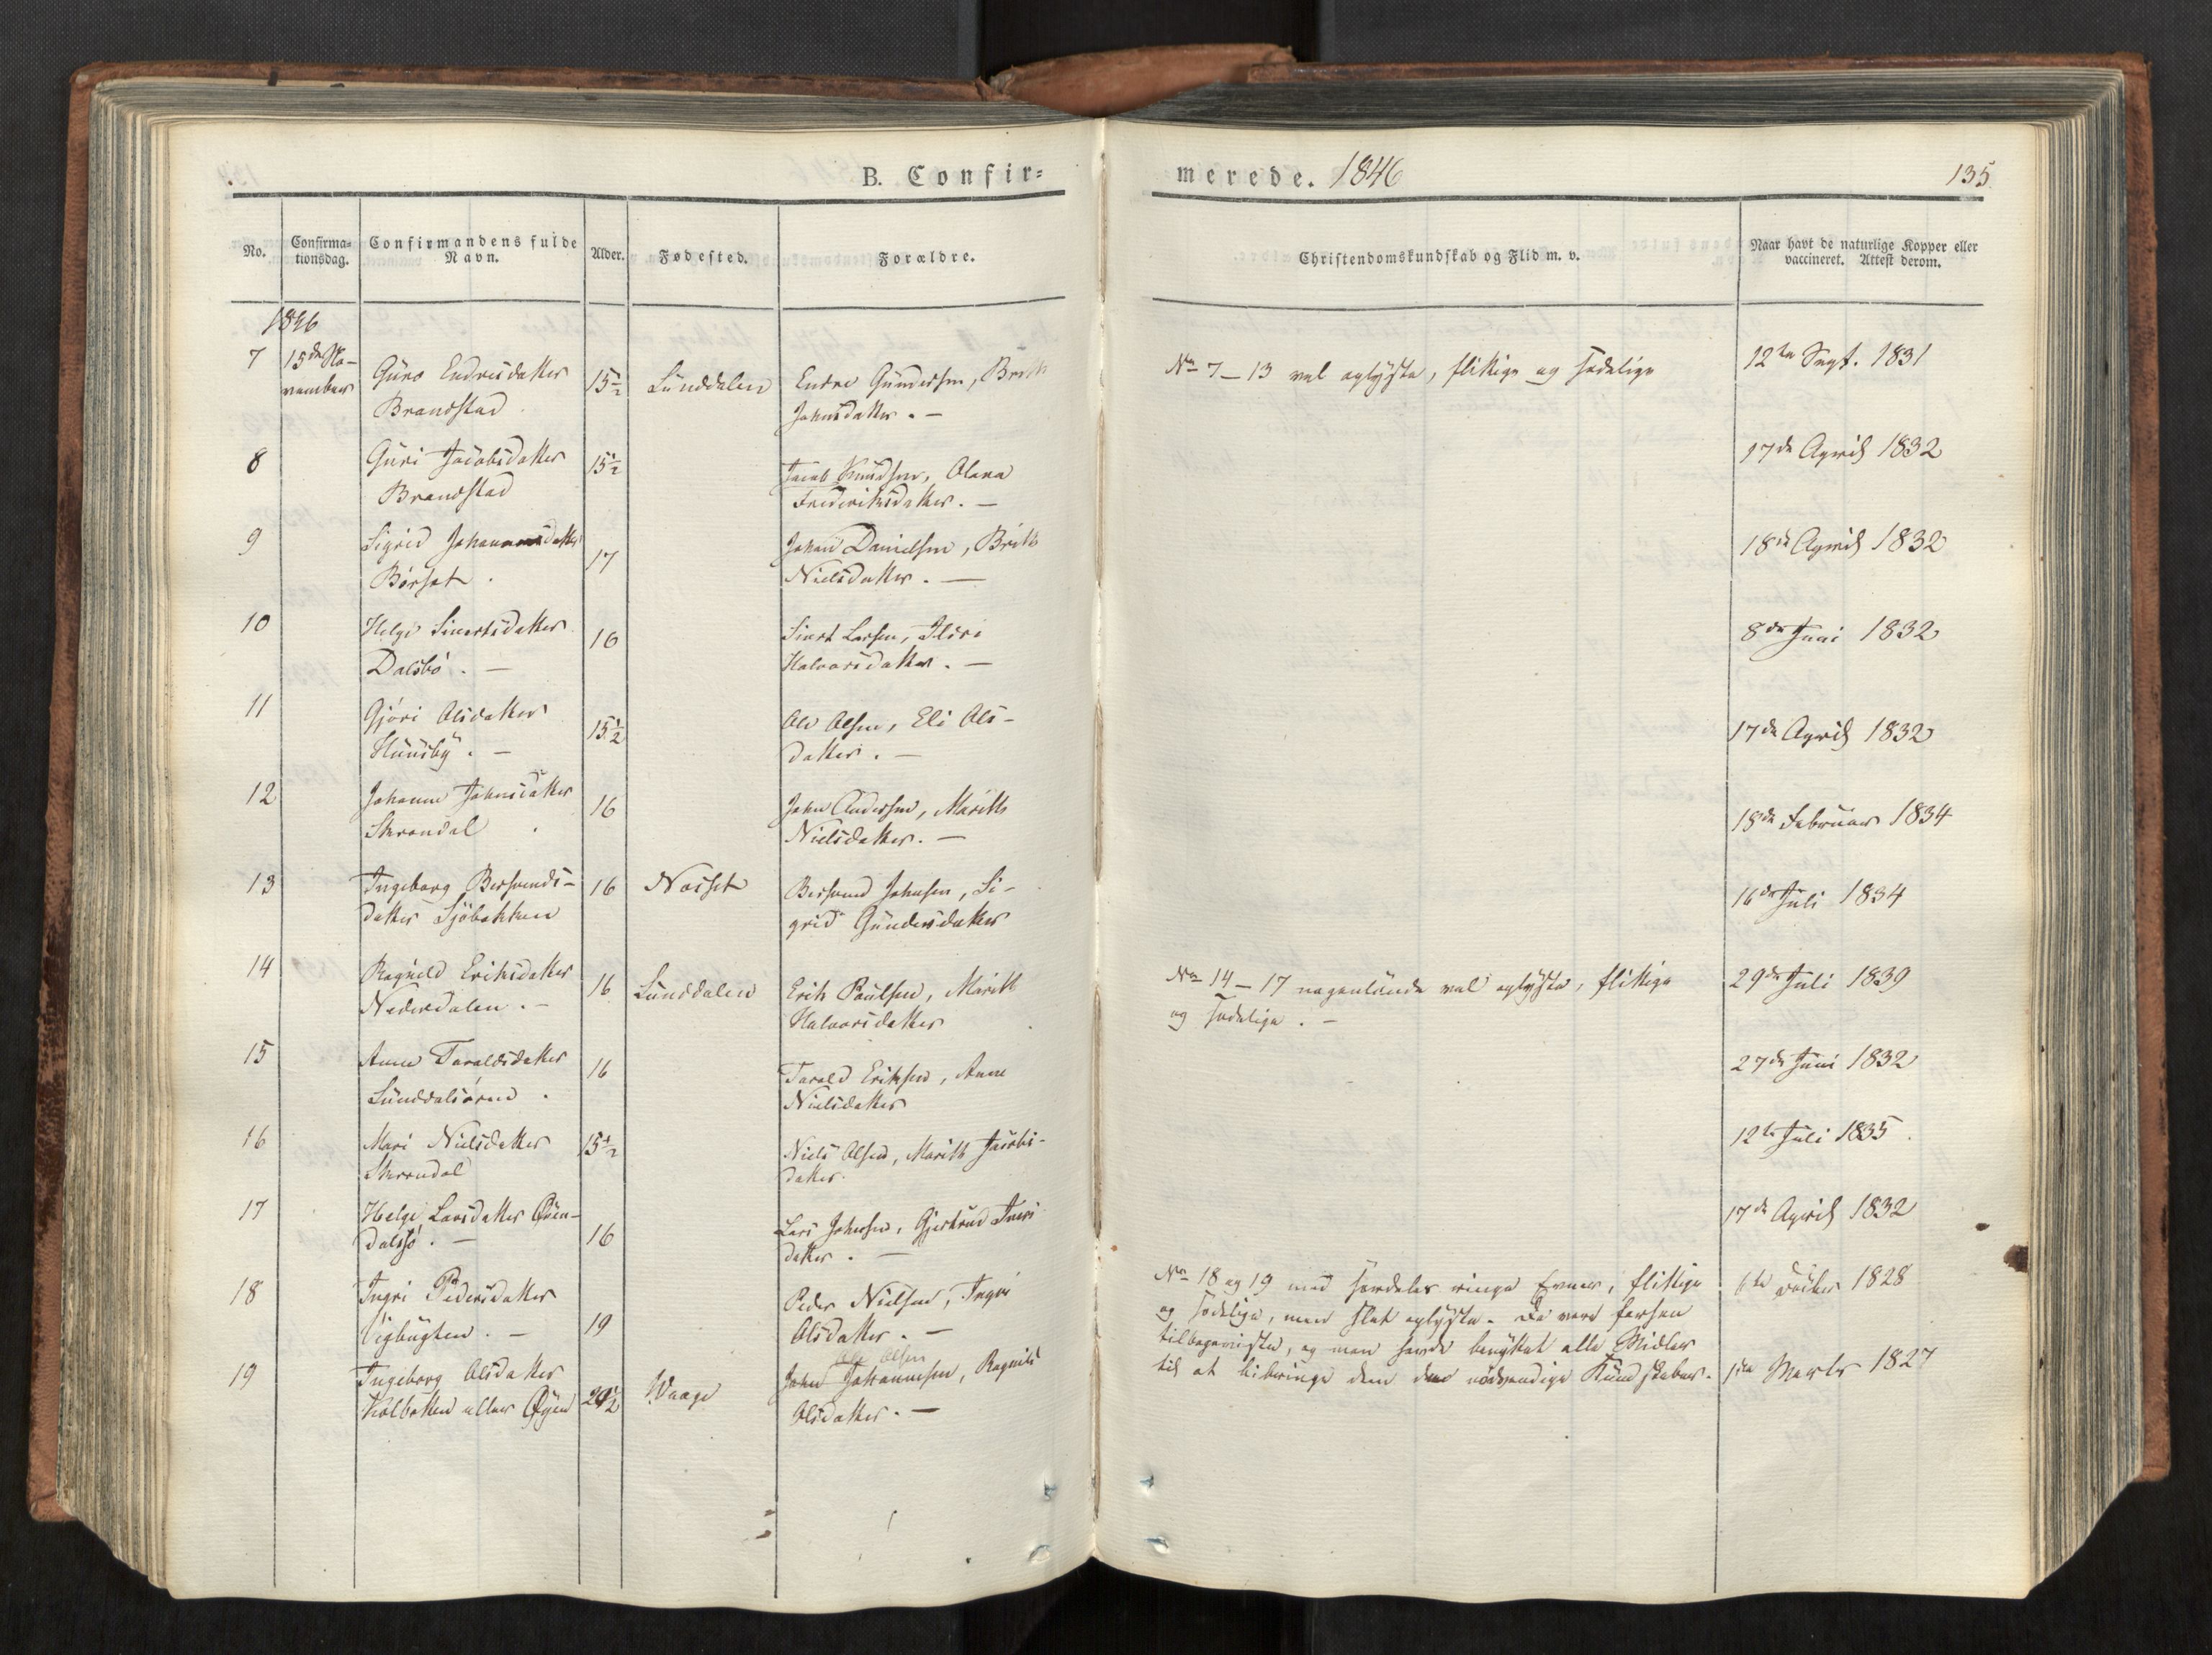 B. Confir=
merede. 1846
135
No.
Confirma=
tionsdag.
Confirmandens fulde
Navn.
Alder.
Fødested.
Forældre.
Christendomskundskab og Flid m. v.
Naar havt de naturlige Kopper eller
vaccineret. Attest derom.
1846
7 15de No-
vember
Guro Endresdatter 15½ Sunddalen Endre Gundersen, Brith
Brandstad Johnsdatter. —
No 7–13 vel oplyste, flittige og sædelige
12te Sept. 1831
8 Guri Jacobsdatter 15½ Jacob Knudsen, Olava
Brandstad Frederiksdatter. —
17de April 1832
9 Sigrid Johansdatter 17 Johan Danielsen, Brith
Børset Nielsdatter. —
18de April 1832
10 Helge Sivertsdatter 16 Sivert Larsen,
Dalsbø. — Halvorsdatter. —
8de Juni 1832
11 Gjøri Olsdatter 15½ Ole Olsen, Eli Ols-
Hunsby. — datter. —
17de April 1832
12 Johanne Johnsdatter 16 John Andersen, Marith
Skrondal Nielsdatter. —
18de Februar 1834
13 Ingeborg Bersvends- 16 Nosset Bersvend Johnsen, Si-
datter Sjøbakken grid Gundersdatter
16de Juli 1834
14 Ragnild Eriksdatter 16 Sunddalen Erik Paulsen, Marith
Nederdalen. — Halvorsdatter
No 14–17 nogenlunde vel oplyste, flittige
og sædelige. —
29de Juli 1839
15 Anne Taraldsdatter 16 Tarald Eriksen, Anne
Sunddalsøren Nielsdatter
27de Juni 1832
16 Mari Nielsdatter 15½ Niels Olsen, Marith Jacobs-
Skrondal datter
12te Juli 1835
17 Helge Larsdatter Øxen- 16 Lars Johnsen, Gjertrud Ivers
dalssø. — datter. —
17de April 1832
18 Ingri Pedersdatter 19 Peder Nielsen, Ingri
Vigbugten. — Olsdatter. —
No 18 og 19 med særdeles ringe Evner, flittige
og sædelige, men slet oplyste. De vare forhen
tilbageviste, og man havde benyttet alle Midler
til at bibringe dem den nødvendige Kundskaber.
6te 1828
19 Ingeborg Olsdatter 20½ Waage Ole Olsen
John Johannesen, Ragnild
Kolbotten eller Øyen Olsdatter. —
1ste Marts 1827